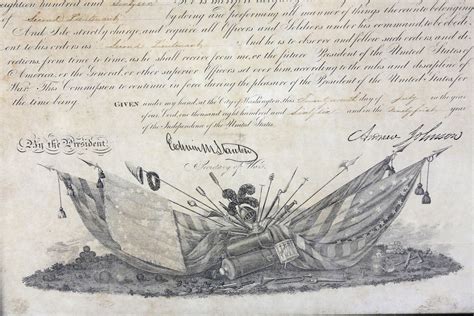 eight hundred and sixtysix
by doing and performing all manner of things thereto belonging.
And I do strictly charge, and require all Officers and Soldiers under his command to be obedi-
ent to his orders as Second Lieutenant. And he is to observe and follow such orders, and di-
rections, from time to time, as he shall receive from me, or the future President of the United States of
America, or the General or other superior Officers set over him, according to the rules and discipline of
War. This Commission to continue in force during the pleasure of the President of the United States, for
the time being.
GIVEN under my hand at the City of Washington, this day of July in the year
of our Lord, one thousand eight hundred and sixtysix and in the ninetyfirst year
of the Independence of the United States.
By the President
Andrew Johnson
Edwin M Stanton
Secretary of War.